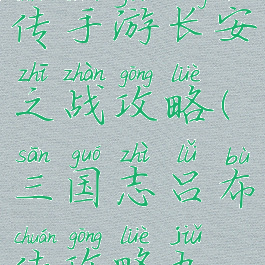 传手游长安
zhī zhàn gōng lüè
之战攻略(
sān guó zhì lǚ bù
三国志吕布
chuán gōng lüè jiǔ
传攻略九